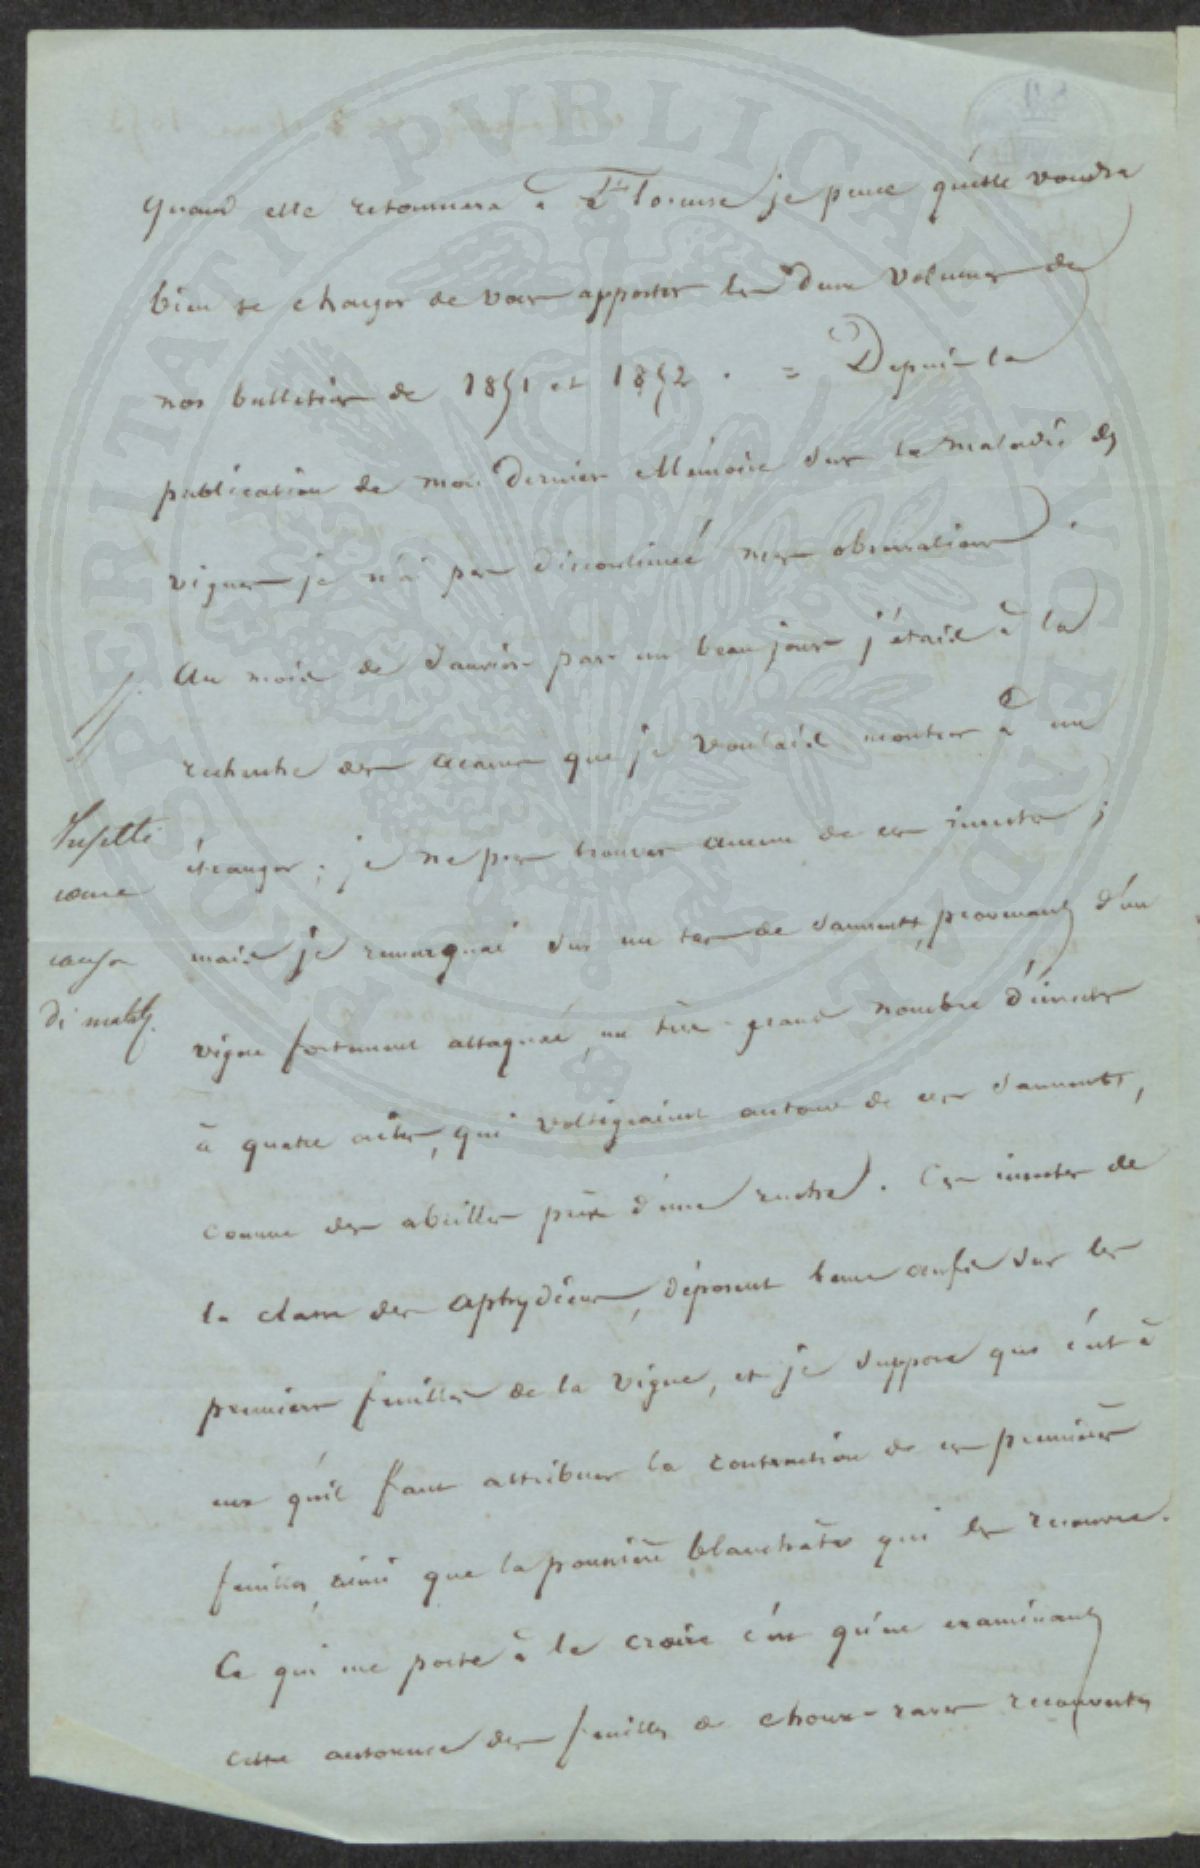 quand elle retournera à Florence je pense qu'elle voudra
bien se charger de vous apporter les deux volumes de
nos bulletins de 1851 et 1852. = Depuis la
publication de mon dernier Mémoire sur la maladie des
vignes je n'ai pas discontinué mes observations.
Au mois de Janvier par un beau jour j'étais à la
recherche des acarus que je voulais montrer à un
étranger; je ne pus trouver aucun de ces insectes;
mais je remarquai sur un tas de sarments, provenant d'une
vigne fortement attaquée, un très-grand nombre d'insectes
à quatre ailes, qui voltigeaient autour de ces sarments,
comme des abeilles près d'une ruche. Ces insectes de
la classe des aphydiens, déposent leurs œufs sur les
premières feuilles de la vigne, et je suppose que c'est à
eux qu'il faut attribuer la contraction de ces premières
feuilles, ainsi que la poussière blanchâtre qui les recouvre.
Ce qui me porte à le croire c'est qu'en examinant
cette automne des feuilles de choux-raves recouvertes
Insetti
come
causa
di malat.
PROSPERITATI PVBLICAE AVGENDAE